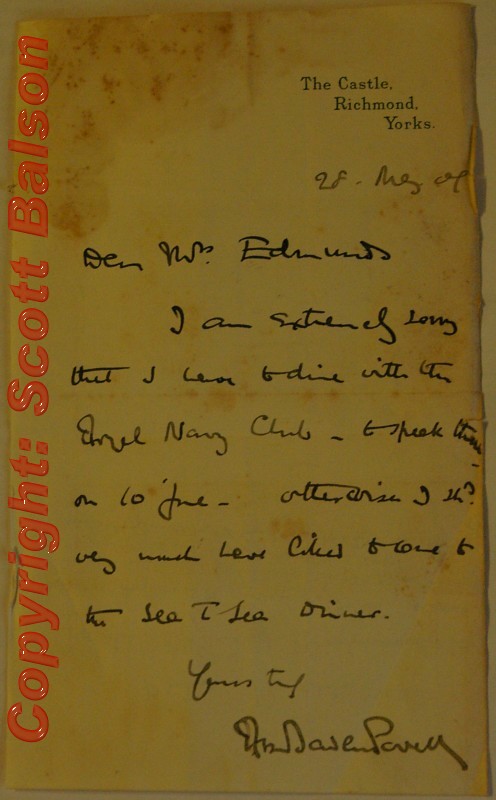 The Castle,
Richmond,
Yorks.
28. May 09
Dear Mrs. Edmunds
I am extremely sorry
that I have to dine with the
Royal Navy Club – to speak there –
on 10 June – otherwise I shd.
very much have liked to come to
the Sea T Sea Dinner.
Yours try
Baden Powell
Copyright: Scott Balson